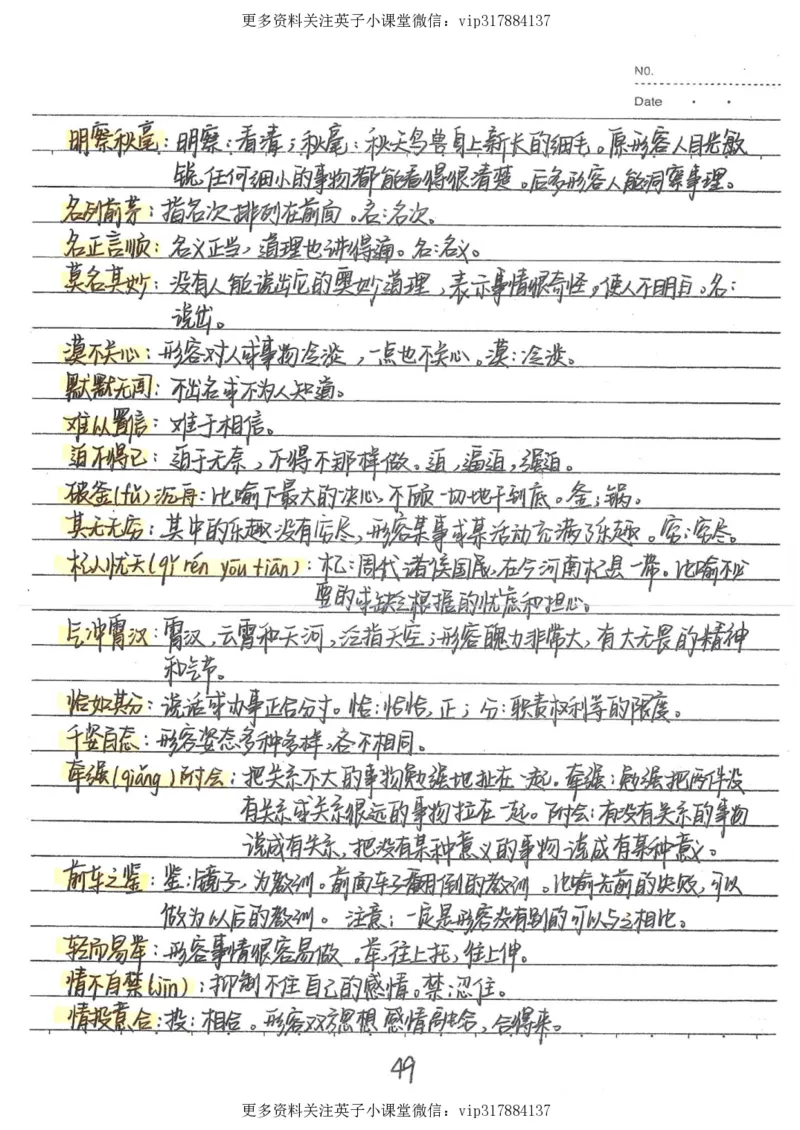 更多资料关注英子小课堂微信：vip317884137
NO.
Date
明察秋毫：明察：看清；秋毫：秋天鸟兽身上新长的细毛。原形容人目光敏
锐，任何细小的事物都能看得很清楚。后多形容人能洞察事理。
名列前茅：指名次排列在前面。名：名次。
名正言顺：名义正当，道理也讲得通。名：名义。
莫名其妙：没有人能说出它的奥妙道理，表示事情很奇怪，使人不明白。名：
说出。
漠不关心：形容对人或事物冷淡，一点也不关心。漠：冷淡。
默默无闻：不出名或不为人知道。
难以置信：难于相信。
迫不得已：迫于无奈，不得不那样做。迫，逼迫，强迫。
破釜(fǔ)沉舟：比喻下最大的决心，不顾一切地干到底。釜：锅。
其乐无穷：其中的乐趣没有穷尽，形容某事或某活动充满了乐趣。穷：穷尽。
杞人忧天(qǐ rén yōu tiān)：杞：周代诸侯国民，在今河南杞县一带。比喻不必
要的或缺乏根据的忧虑和担心。
气冲霄汉：霄汉，云霄和天河，泛指天空；形容魄力非常大，有大无畏的精神
和气节。
恰如其分：说话或办事正合分寸。恰：恰恰，正；分：职责权利等的限度。
千姿百态：形容姿态多种多样，各不相同。
牵强(qiǎng)附会：把关系不大的事物勉强地扯在一起。牵强：勉强把两件没
有关系或关系很远的事物拉在一起。附会：有没有关系的事物
说成有关系，把没有某种意义的事物说成有某种意义。
前车之鉴：鉴：镜子，为教训。前面车子翻倒的教训。比喻先前的失败，可以
做为以后的教训。 注意：一定是形容没有别的可以与之相比。
轻而易举：形容事情很容易做。举，往上托，往上伸。
情不自禁(jīn)：抑制不住自己的感情。禁：忍住。
情投意合：投：相合。形容双方思想感情融洽，合得来。
49
更多资料关注英子小课堂微信：vip317884137